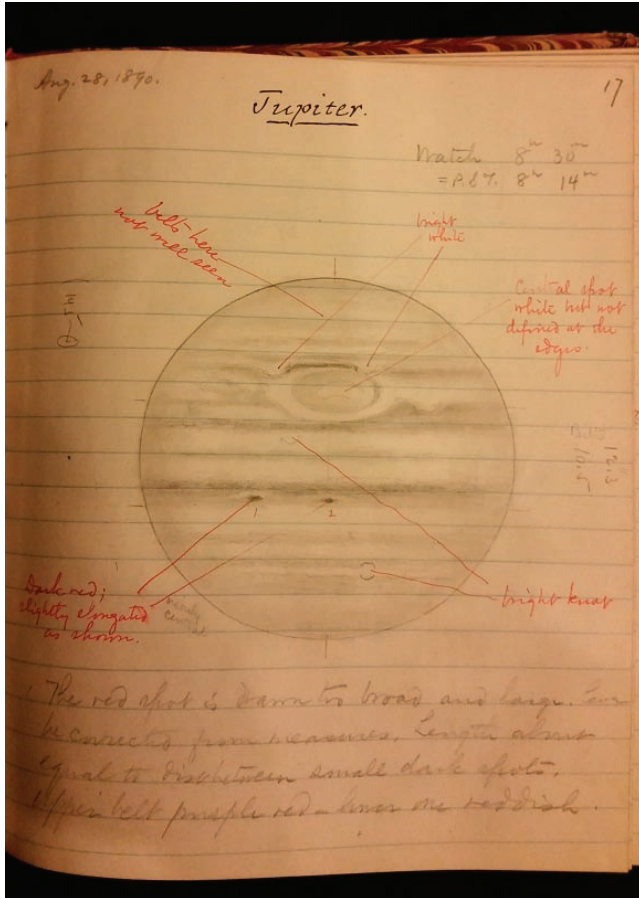 Aug. 28, 1890.
17
Jupiter.
Watch 8h 30m
= P.S.T. 8h 14m
belts here
not well seen
bright
white
Central spot
white but not
defined at the
edges.
12.3
10.5
1
2
Dark red;
slightly elongated
as shown.
nearly
central
bright knot
The red spot is drawn too broad and large. Can
be corrected from measures. Length about
equal to dist between small dark spots.
Upper belt purple red – lower one reddish.